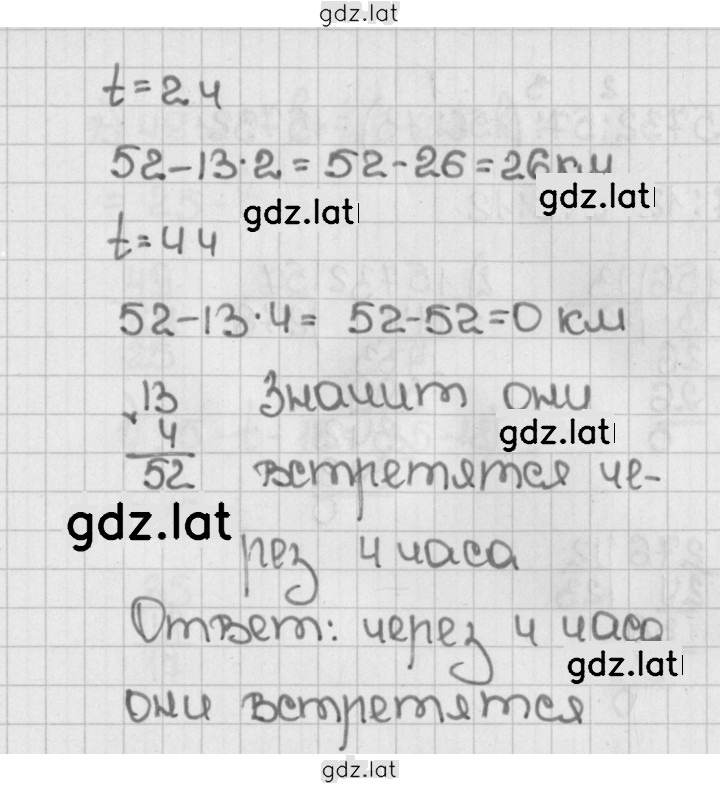 gdz.lat
t=2ч
52-13·2=52-26=26км
gdz.lat
gdz.lat
t=4ч
52-13·4= 52-52=0 км
×13 Значит они
4
gdz.lat
52 встретятся че-
gdz.lat
рез 4 часа
Ответ: через 4 часа
gdz.lat
они встретятся
gdz.lat